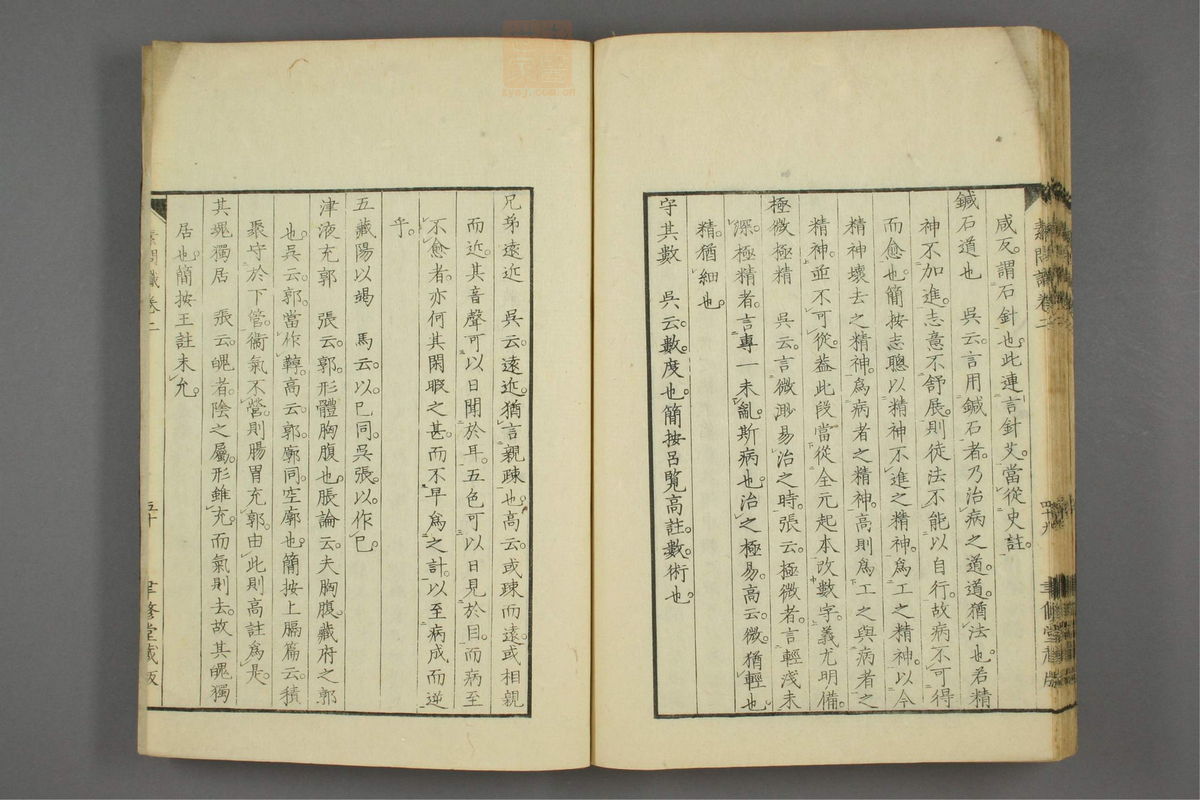 咸反。謂石針也。此連言針艾。當從史註。
鍼石道也　吳云。言用鍼石者。乃治病之道。道。猶法也。若精
神不加進。志意不舒展。則徒法不能以自行。故病不可得
而愈也。簡按志聰以精神不進之精神。爲工之精神。以今
精神壞去之精神。爲病者之精神。高則爲工之與病者之
精神。並不可從。蓋此段當從全元起本改數字。義尤明備。
極微極精　吳云。言微渺易治之時。張云。極微者。言輕淺未
深。極精者。言專一未亂。斯病也。治之極易。高云。微。猶輕也。
精。猶細也。
守其數　吳云。數。度也。簡按呂覽高註。數。術也。
素問識卷二
四十九
聿修堂藏版
兄弟遠近　吳云。遠近。猶言親疎也。高云。或疎而遠。或相親
而近。其音聲可以日聞於耳。五色可以日見於目。而病至
不愈者。亦何其閑暇之甚。而不早爲之計。以至病成而逆
乎。
五藏陽以竭　馬云。以。已同。吳張。以。作已。
津液充郭　張云。郭。形體胸腹也。脹論云。夫胸腹。藏府之郭
也。吳云。郭。當作鞹。高云。郭。廓同。空廓也。簡按上膈篇云。積
聚守於下管。衞氣不營。則腸胃充郭。由此則高註爲是。
其魄獨居　張云。魄者。陰之屬。形雖充。而氣則去。故其魄獨
居也。簡按王註未允。
素問識卷二
五十
聿修堂藏版